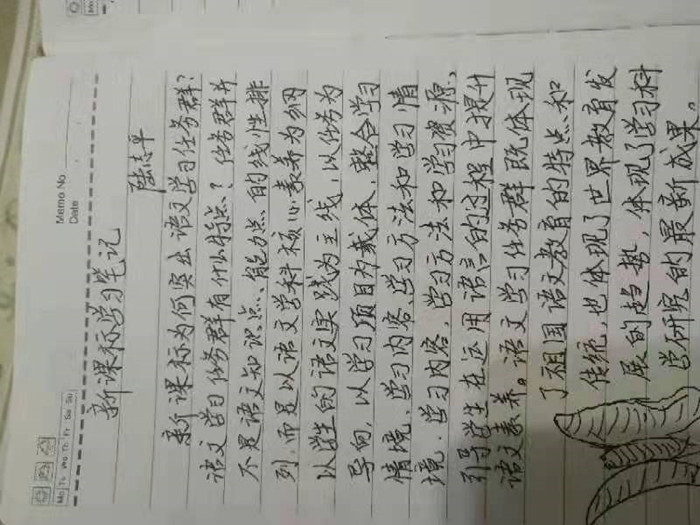 Memo No.
Date
Mo Tu We Th Fr Sa Su
新课标学习笔记
陆志平
新课标为何突出语文学习任务群?
语文学习任务群有什么特点? 任务群并
不是语文知识点、能力点的线性排
列,而是以语文学科核心素养为纲
以学生的语文实践为主线,以任务为
导向,以学习项目为载体,整合学习
情境、学习内容、学习方法和学习情
境.学习内容,学习方法和学习资源,
引导学生在运用语言的过程中提升
语文素养。语文学习任务群既体现
了祖国语文教育的特点和
传统,也体现了世界教育发
展的趋势,体现了学习科
学研究的最新成果。